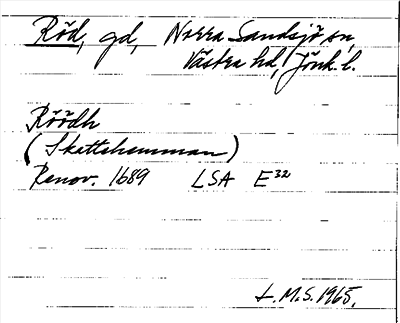 Röd, gd, Norra Sandsjö sn,
Västra hd, Jönk. l.
Röödh
(Skattehemman)
Renov. 1689 LSA E32
L.M.S. 1965.